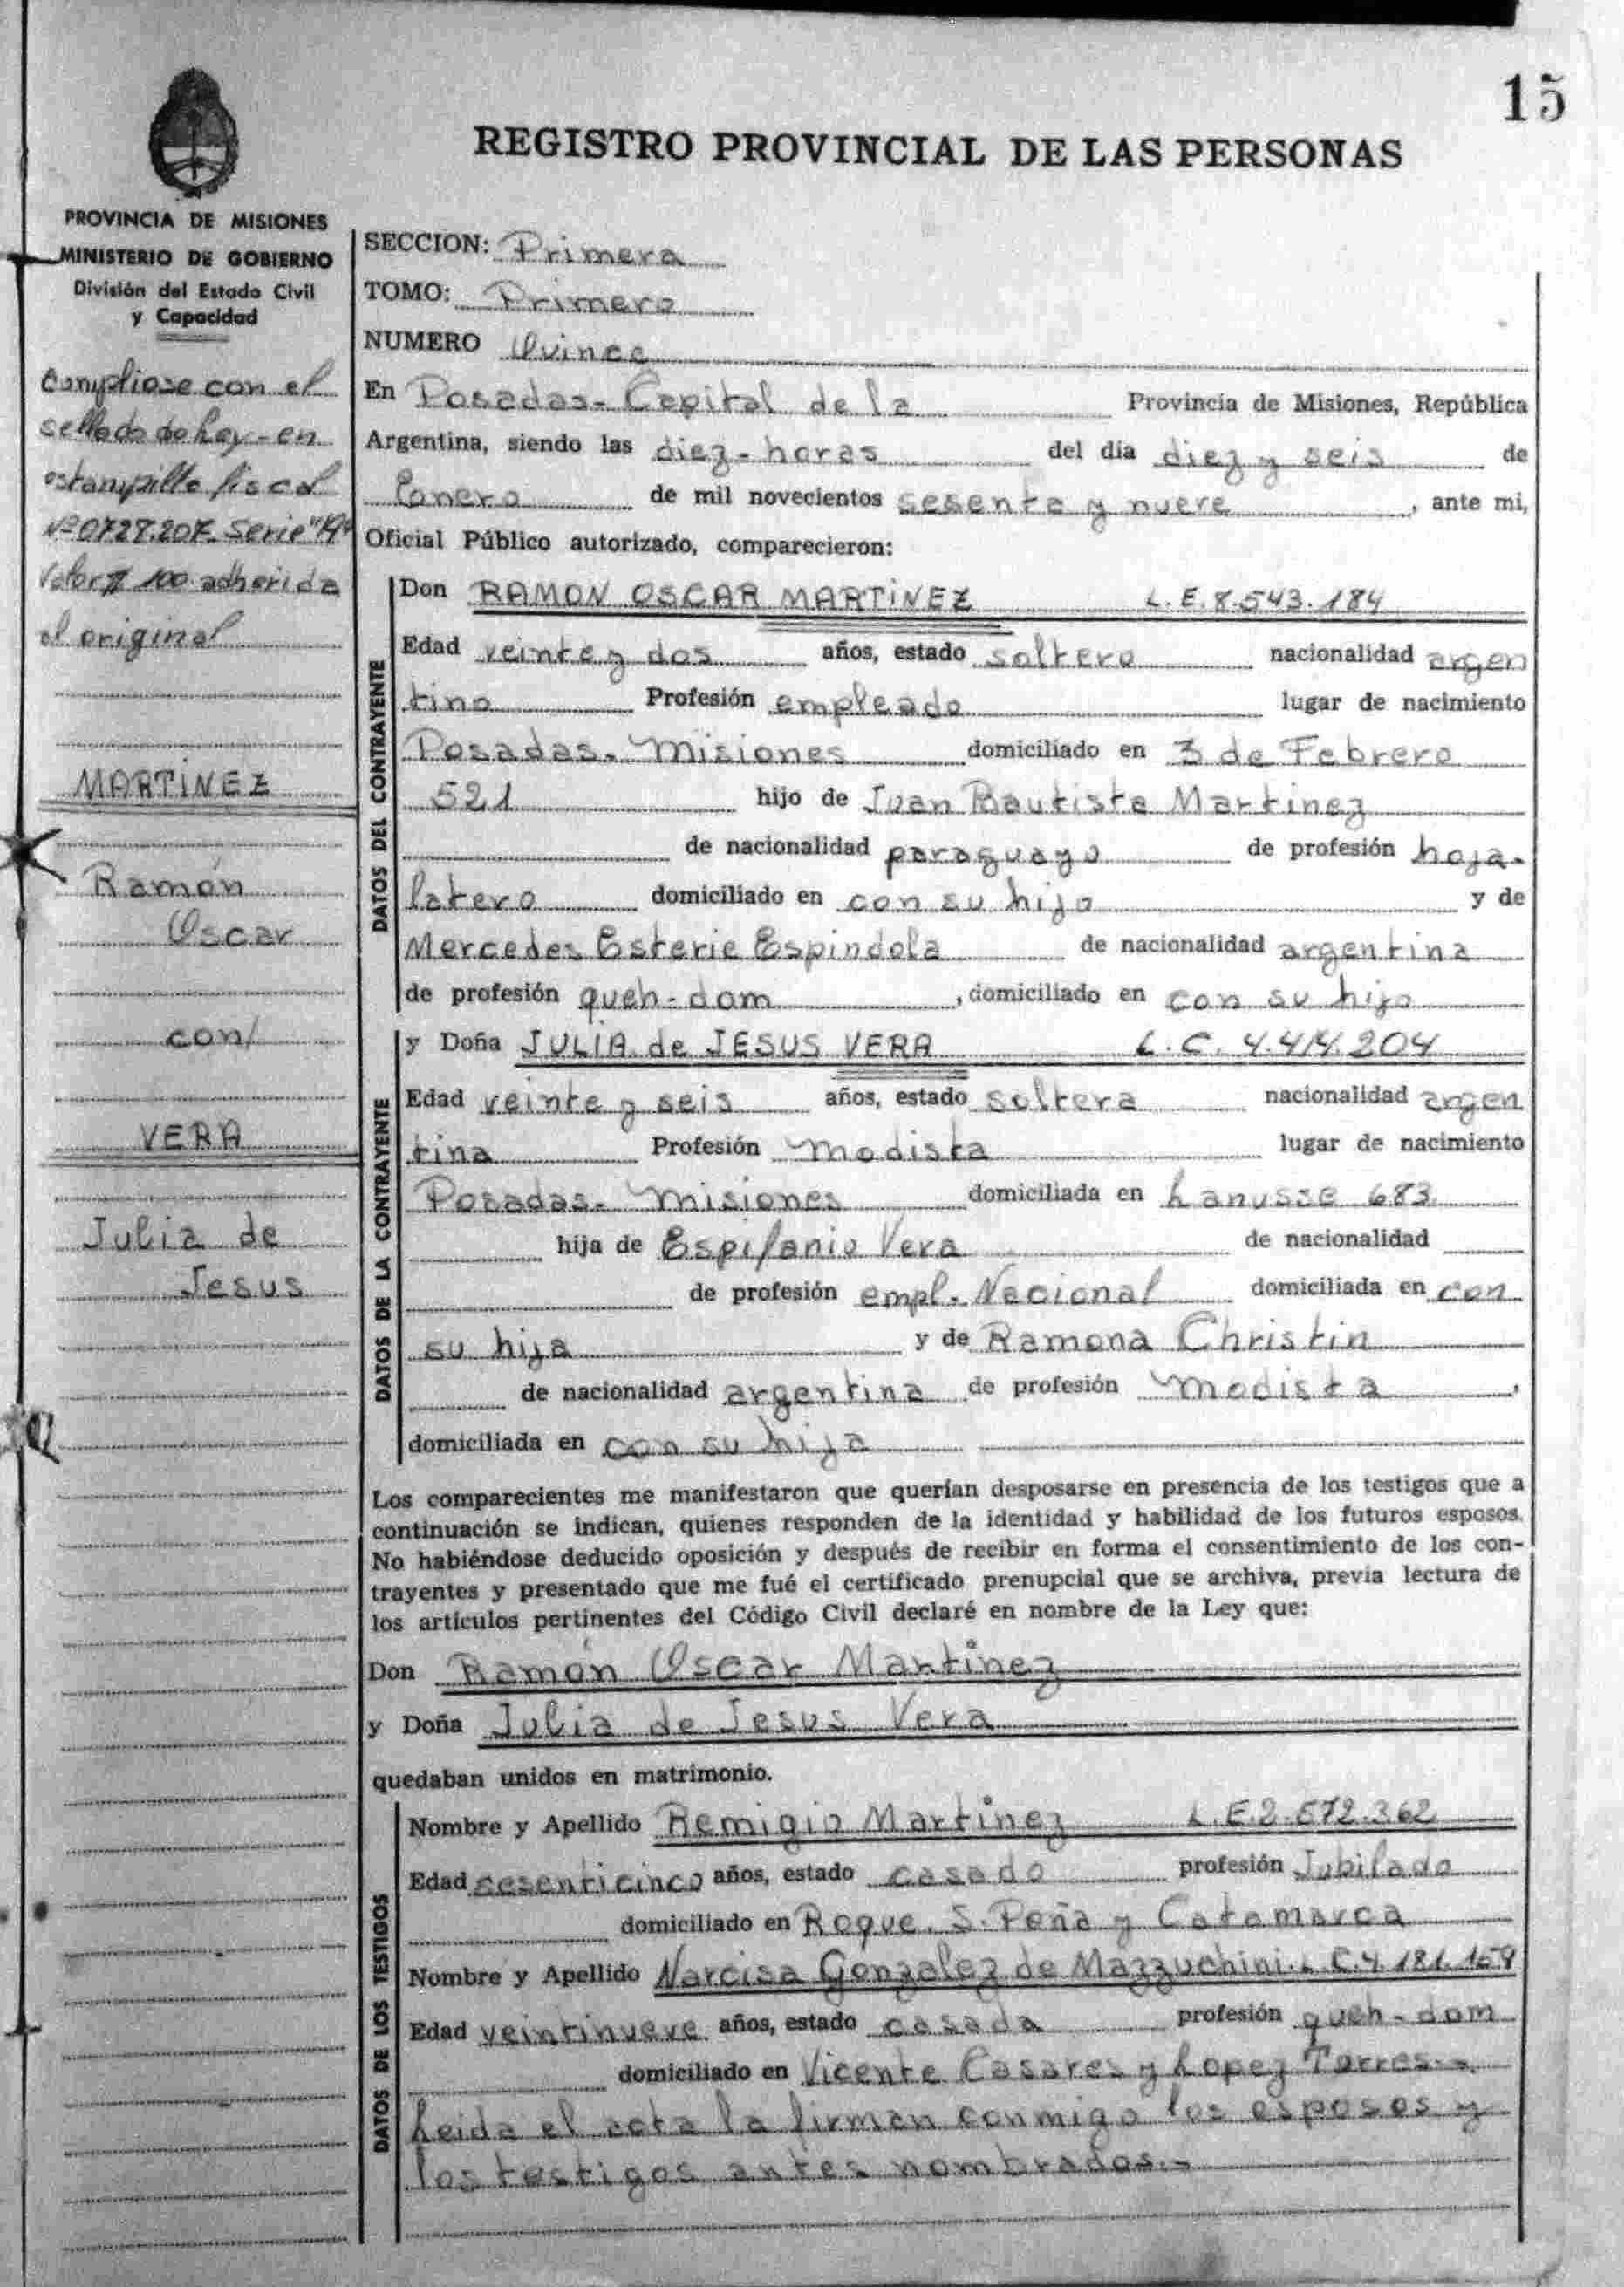 15
REGISTRO PROVINCIAL DE LAS PERSONAS
PROVINCIA DE MISIONES
MINISTERIO DE GOBIERNO
División del Estado Civil
y Capacidad
Cumpliose con el
sellado de Ley - en
estampilla fiscal
Nº 0727.207 Serie "A"
Valor $ 100 adherida
al original
MARTINEZ
Ramón
Oscar
con/
VERA
Julia de
Jesus
SECCION: Primera
TOMO: Primero
NUMERO Quince
En Posadas - Capital de la Provincia de Misiones, República
Argentina, siendo las diez - horas del día diez y seis de
Enero de mil novecientos sesenta y nueve, ante mi,
Oficial Público autorizado, comparecieron:
DATOS DEL CONTRAYENTE
Don RAMON OSCAR MARTINEZ L.E. 8.543.184
Edad veinte y dos años, estado soltero nacionalidad argen
tino Profesión empleado lugar de nacimiento
Posadas - Misiones domiciliado en 3 de Febrero
521 hijo de Juan Bautista Martinez
de nacionalidad paraguayo de profesión hoja-
latero domiciliado en con su hijo y de
Mercedes Esterie Espindola de nacionalidad argentina
de profesión queh - dom, domiciliado en con su hijo
DATOS DE LA CONTRAYENTE
y Doña JULIA de JESUS VERA L.C. 4.414.204
Edad veinte y seis años, estado soltera nacionalidad argen
tina Profesión Modista lugar de nacimiento
Posadas - Misiones domiciliada en Lanusse 683
hija de Espifanio Vera de nacionalidad
de profesión empl. Nacional domiciliada en con
su hija y de Ramona Christin
de nacionalidad argentina de profesión Modista,
domiciliada en con su hija
Los comparecientes me manifestaron que querían desposarse en presencia de los testigos que a
continuación se indican, quienes responden de la identidad y habilidad de los futuros esposos.
No habiéndose deducido oposición y después de recibir en forma el consentimiento de los con-
trayentes y presentado que me fué el certificado prenupcial que se archiva, previa lectura de
los artículos pertinentes del Código Civil declaré en nombre de la Ley que:
Don Ramón Oscar Martinez
y Doña Julia de Jesus Vera
quedaban unidos en matrimonio.
DATOS DE LOS TESTIGOS
Nombre y Apellido Remigio Martinez L.E. 2.572.362
Edad sesenticinco años, estado casado profesión Jubilado
domiciliado en Roque. S. Peña y Catamarca
Nombre y Apellido Narcisa Gonzalez de Mazzuchini. L.C. 4.181.159
Edad veintinueve años, estado casada profesión queh - dom
domiciliado en Vicente Casares y Lopez Torres.-
Leida el acta la firman conmigo los esposos y
los testigos antes nombrados.-